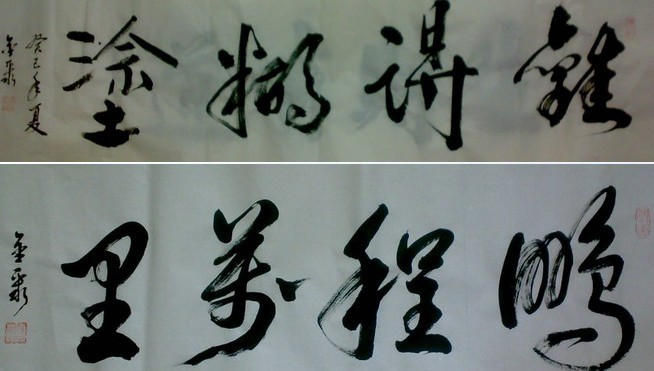 難得糊塗
癸巳年夏
金
鵬程萬里
金